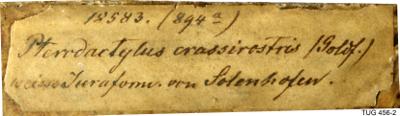 12583. (894a)
Pterodactylus crassirostris (Goldf.)
weisse Juraform. von Solenhofen.
TUG 456-2